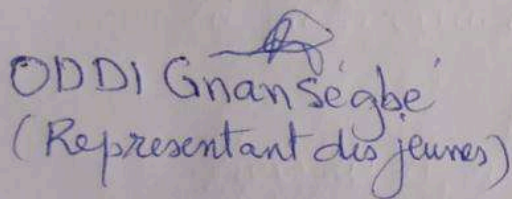 ODDI Gnanségbé
(Représentant des jeunes)